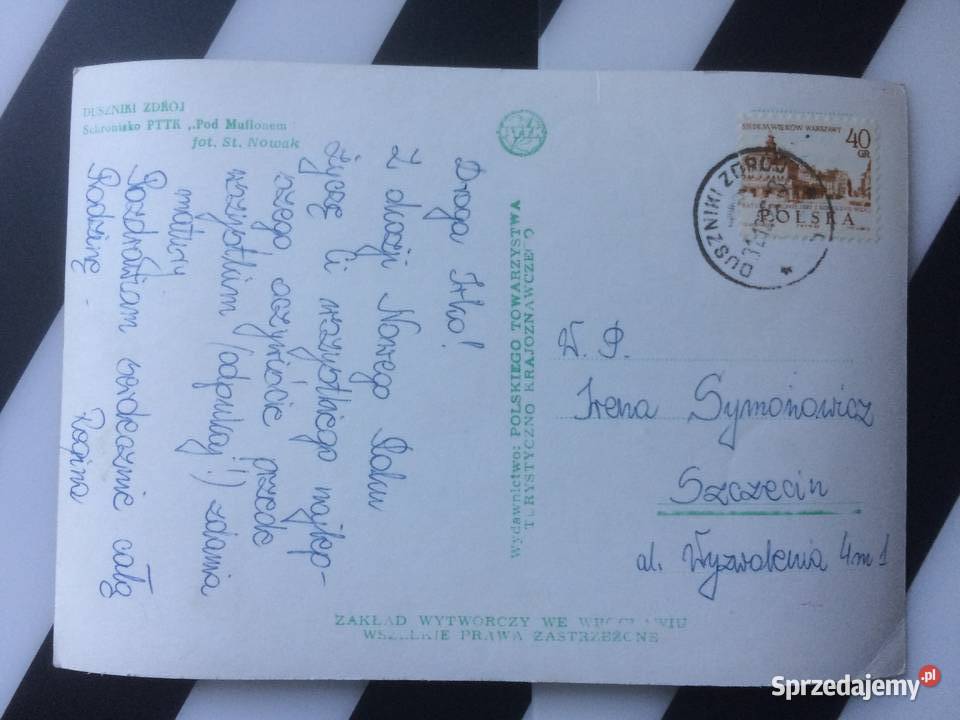 DUSZNIKI ZDRÓJ
Schronisko PTTK „Pod Muflonem
fot. St. Nowak
Droga Irko!
Z okazji Nowego Roku
życzę Ci wszystkiego najlep-
szego oczywiście przede
wszystkim (odpukaj!) zdania
matury
Pozdrawiam serdecznie całą
Rodzinę -
Regina
PTTK
Wydawnictwo: POLSKIEGO TOWARZYSTWA
TURYSTYCZNO KRAJOZNAWCZEGO
SIEDEM WIEKÓW WARSZAWY
40
GR
POLSKA
DUSZNIKI ZDRÓJ
W. P.
Irena Symonowicz
Szczecin
al. Wyzwolenia 4 m 1
ZAKŁAD WYTWÓRCZY WE WROCŁAWIU
WSZELKIE PRAWA ZASTRZEŻONE
Sprzedajemy.pl